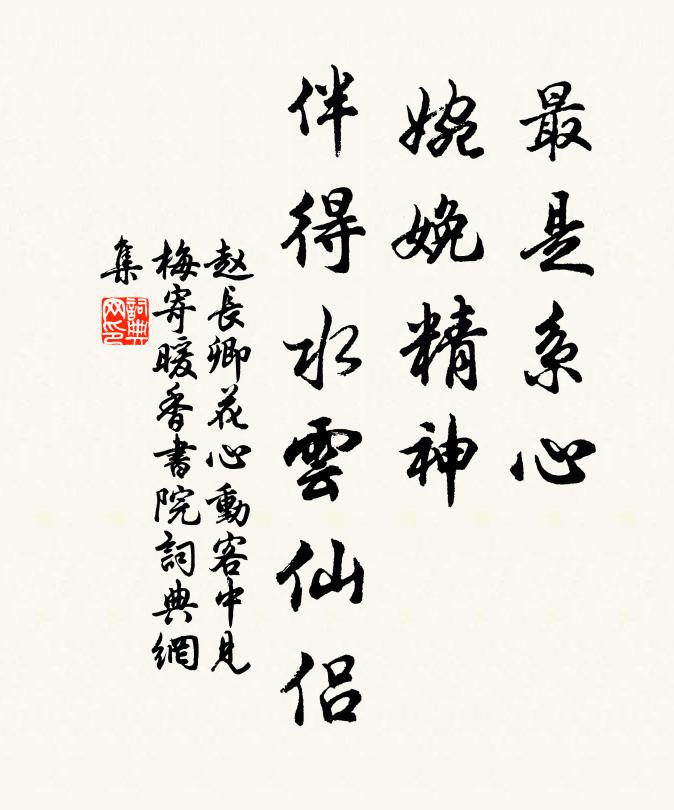 最是系心
婉娩精神
伴得水雲仙侶
赵長卿花心動客中見
梅寄暖香書院詞典網
集
詞典
网印